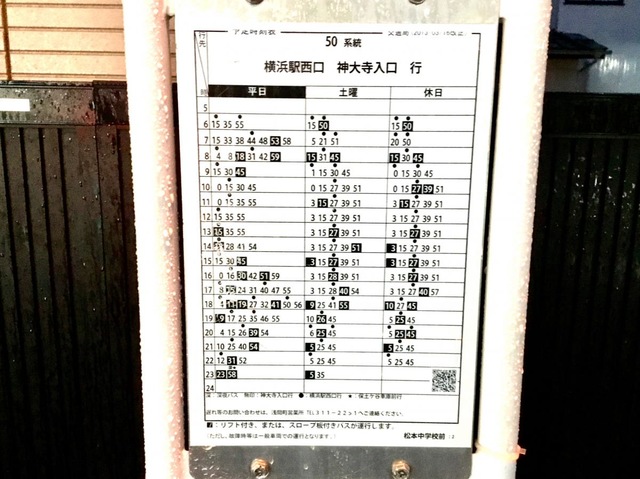 予定時刻表
50 系統
横浜駅西口 神大寺入口 行
行先
時 平日 土曜 休日
5
6 15 35 55 15 50 15 50
7 15 33 38 44 48 53 58 5 21 51 20 50
8 4 8 18 31 42 59 15 31 45 15 30 45
9 15 30 45 1 15 30 45 0 15 30 45
10 0 15 30 45 0 15 27 39 51 0 15 27 39 51
11 0 15 35 55 3 15 27 39 51 3 15 27 39 51
12 15 35 55 3 15 27 39 51 3 15 27 39 51
13 35 55 3 15 27 39 51 3 15 27 39 51
14 28 41 54 3 15 27 39 51 3 15 27 39 51
15 15 30 45 3 15 27 39 51 3 15 27 39 51
16 0 16 30 42 51 59 3 15 28 39 51 3 15 27 39 51
17 8 24 31 40 47 55 3 15 28 40 54 3 15 27 40 57
18 19 27 32 41 50 56 9 25 41 55 10 27 45
19 17 25 35 46 55 10 26 45 5 25 45
20 4 15 26 39 54 6 25 45 5 25 45
21 10 25 40 54 5 25 45 5 25 45
22 12 31 52 5 25 45 5 25 45
23 23 58 5 35
24
深:深夜バス 無印:神大寺入口行 ●:横浜駅西口行 ★:保土ケ谷車庫前行
遅れ等のお問い合わせは、浅間町営業所 TEL311-2251へご連絡ください。
:リフト付き、または、スロープ板付きバスが運行します。
(ただし、故障時等は一般車両での運行となります。) 松本中学校前